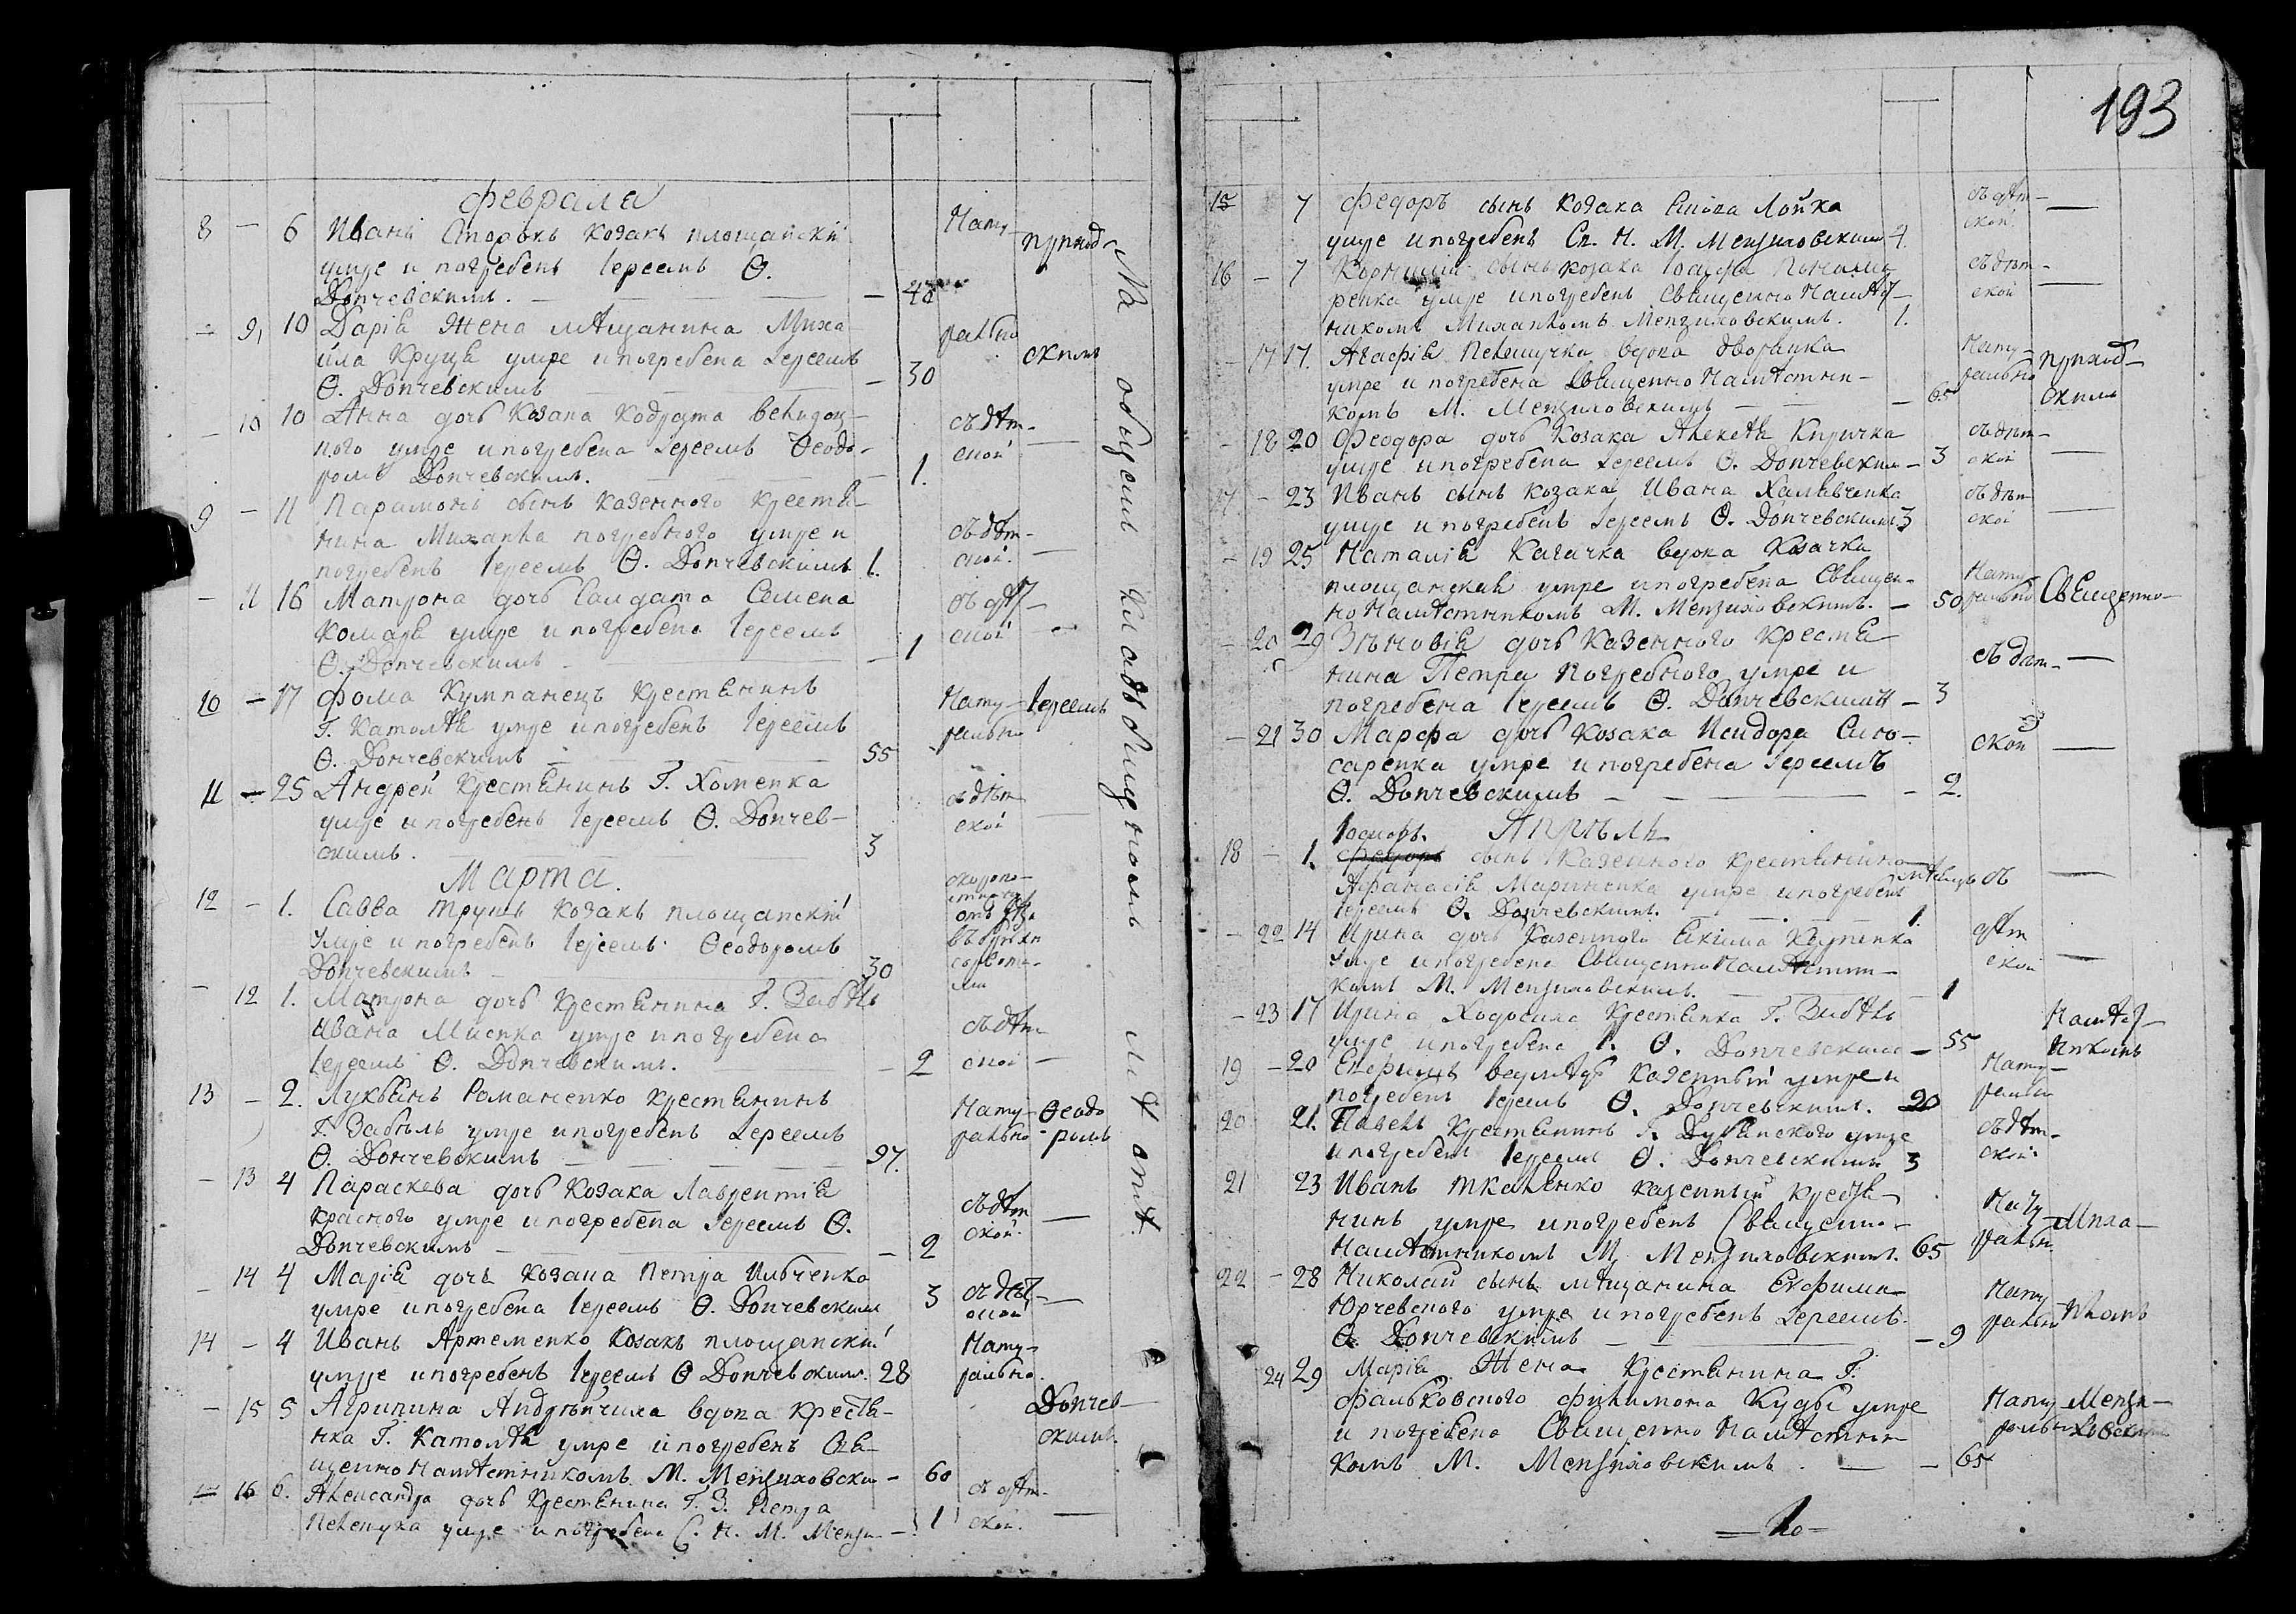 Февраля
8 – 6 Иванъ Сторокъ козакъ площапскій
умре и погребенъ Іереемъ Ѳ.
Допчевскимъ. – 48
Нату-
– 9 10 Дарія жена мѣщанина Миха
ила Круця умре и погребена Іереемъ
Ѳ. Допчевскимъ – 30
рально
– 10 10 Анна дочь Козака
ного умре и погребена Іереемъ Ѳеодо-
ромъ Допчевскимъ. – 1.
съ дѣт-
ской –
9 – 11 Парамонъ сынъ казенного крестья-
нина Михаила погребного умре и
погребенъ Іереемъ Ѳ. Допчевскимъ 1.
съ дѣт-
ской –
– 11 16 Матрона дочь Солдата Семена
Комаря умре и погребена Іереемъ
Ѳ. Допчевскимъ – 1
ской –
10 – 17 Фома Кумпанецъ крестьянинъ
Г. Католѣя умре и погребенъ Іереемъ
Ѳ. Допчевскимъ – 55
Нату-
рально
11 – 25 Андрей крестьянинъ Г. Хоменка
умре и погребенъ Іереемъ Ѳ. Допчев-
скимъ. 3
съ дѣт
ской –
Марта.
12 – 1. Савва Трушъ козакъ площапскій
умре и погребенъ Іереемъ Ѳеодоромъ
Допчевскимъ – 30
– 12 1. Матрона дочь крестьянина Г. Забѣлы
Ивана Миспка умре и погребена
Іереемъ Ѳ. Допчевскимъ. – 2
съ дѣт-
ской –
13 – 2. Лукьянъ Романенко крестьянинъ
Г. Забѣлы умре и погребенъ Іереемъ
Ѳ. Допчевскимъ – 97.
Нату-
рально
– 13 4 Параскева дочь Козака Лаврентія
красного умре и погребена Іереемъ Ѳ.
Допчевскимъ – 2
съ дѣт
ской –
– 14 4 Марія дочь козака Петра Ильченка
умре и погребена Іереемъ Ѳ. Допчевским 3
съ дѣт-
ской –
14 – 4 Иванъ Артеменко Козакъ площапскій
умре и погребенъ Іереемъ Ѳ Допчевским. 28
Нату-
рально.
– 15 5 Агрипина Андрѣичиха вдова крестья-
нка Г. Католѣя умре и погребенъ Свя-
щенно Намѣстникомъ М. Мензиховски – 60
– 16 6. Александра дочь крестьянина Г. З. Петра
Пелепуха умре и погребена С. Н. М. Мензи – 1
съ дѣт-
ской. –
приход-
скимъ
Іереемъ
Ѳеодо
ромъ
Допчев-
скимъ.
На общемъ кладбищѣ
193
15 7 Федоръ сынъ козака Лойка
умре и погребенъ Св. Н. М. Мензиховским 4.
съ дѣт-
ской. –
16 – 7 Корнилій сынъ козака
ренка умре и погребенъ Священно Намѣст-
никомъ Михаиломъ Мензиховскимъ. 1.
съ дѣт-
ской –
– 17 17. Агафія вдова дворянка
умре и погребена Священно Намѣстни-
комъ М. Мензиховскимъ – 65
Нату-
рально
приход-
скимъ
– 18 20 Феодора дочь Козака Алексѣя Киричка
умре и погребена Іереемъ Ѳ. Допчевским – 3
съ дѣт-
ской –
17 – 23 Иванъ сынъ козака Ивана Халявченка
умре и погребенъ Іереемъ Ѳ. Допчевскимъ 3
съ дѣт-
ской –
– 19 25 Наталія Качачка вдова Козачка
площанская умре и погребена Священ-
но Намѣстникомъ М. Мензиховскимъ. – 50
Нату-
рально
Священно-
– 20 29 Зѣновія дочь казенного крестья
нина Петра Погребного умре и
погребена Іереемъ Ѳ. Допчевскимъ – 3
съ дѣт- –
– 21 30 Марфа дочь Козака Исидора Слю-
саренка умре и погребена Іереемъ
Ѳ. Допчевскимъ – 2.
ской –
Апрѣль
18 – 1. Федоръ сынъ Казенного крестьянина
Афанасія Мариненка умре и погребенъ
Іереемъ Ѳ. Допчевскимъ. – 1.
съ –
– 22 14 Ирина дочь Казенного Екима Крупенка
умре и погребена Священно Намѣстни-
комъ М. Мензиховскимъ. – 1
дѣт
ской –
– 23 17 Ирина Ходосиха Крестьянка Г. Забѣлы
умре и погребена І. Ѳ. Допчевским – 55
Намѣст-
никомъ
19 – 20 Ефримъ казенный умре и
погребенъ Іереемъ Ѳ. Допчевскимъ. 20
Нату-
рально
20 21. Павелъ крестьянинъ Г. умре
и погребенъ Іереемъ Ѳ. Допчевскимъ 3
съ дѣт-
ской.
21 23 Иванъ Ткаленко казенный крестья-
нинъ умре и погребенъ Священно-
Намѣстникомъ М. Мензиховскимъ. 65
Нату-
рально
Миха-
22 – 28 Николай сынъ мѣщанина Евфима
Юрчевского умре и погребенъ Іереемъ
Ѳ. Допчевскимъ – 9
Нату-
рально
иломъ
24 29 Марія Жена крестьянина Г.
Фальковского Филимона Куды умре
и погребена Священно Намѣстни-
комъ М. Мензиховскимъ. – 65
Нату-
рально
Мензи-
ховским